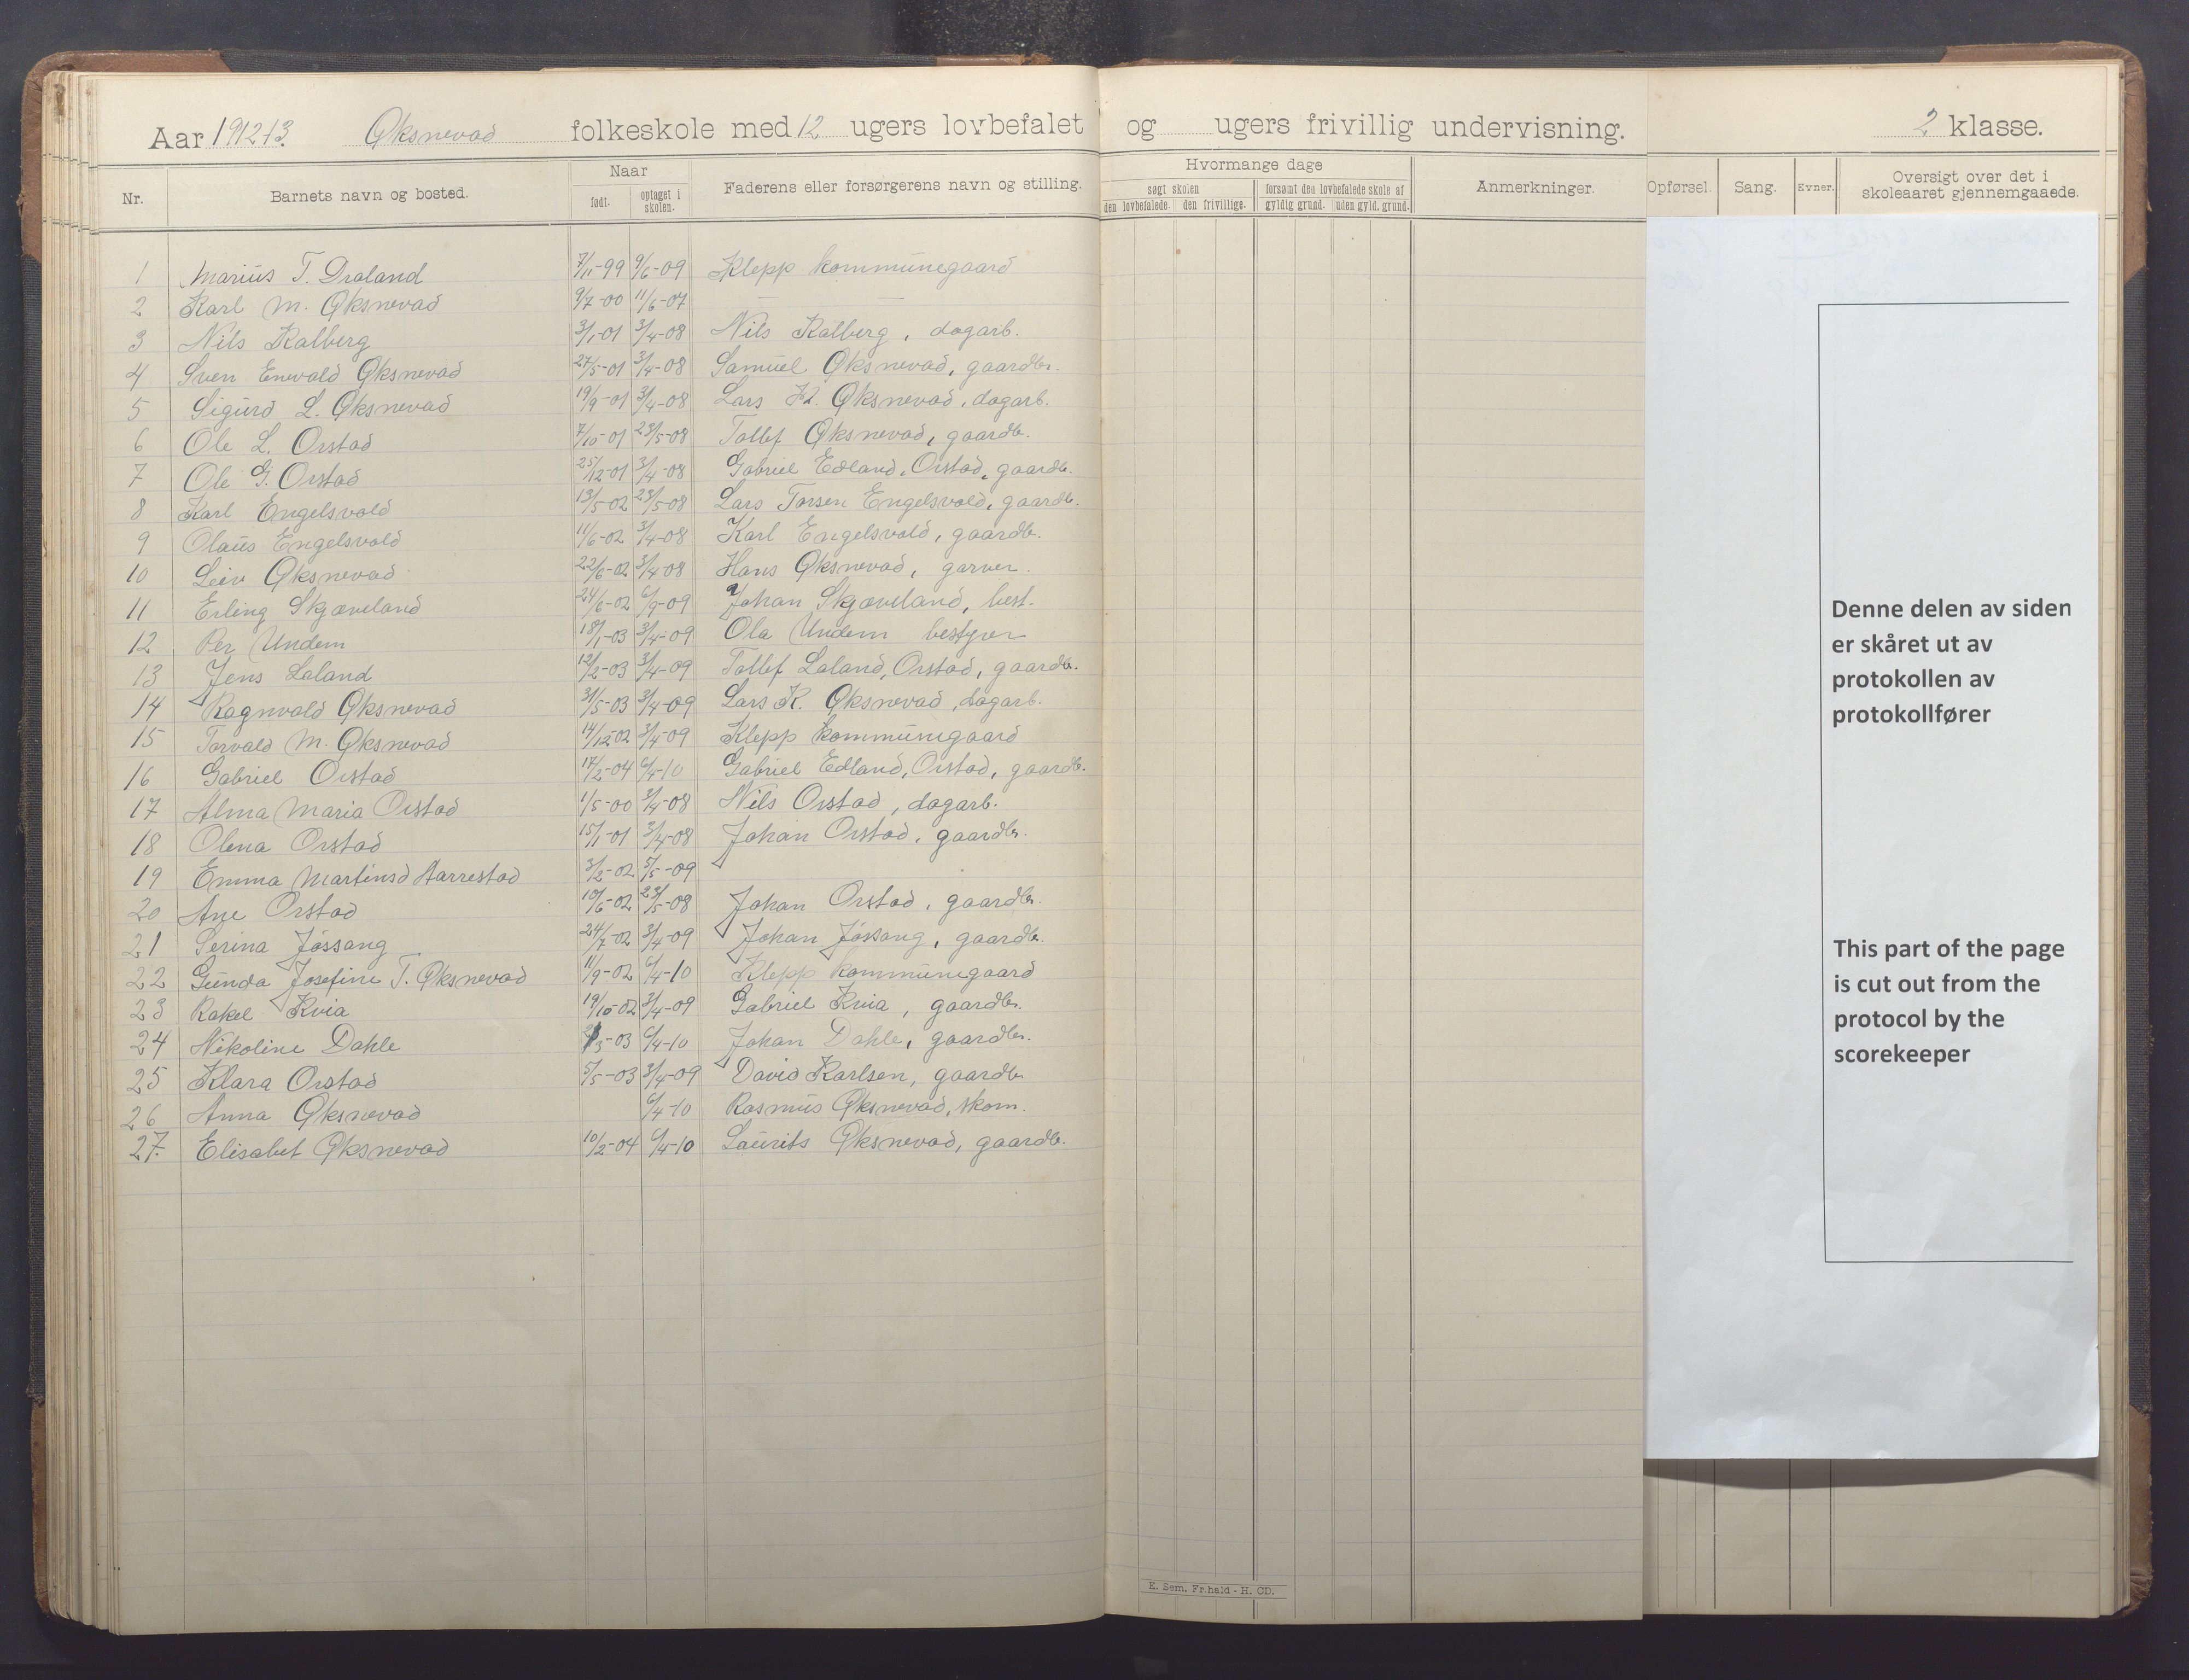 Aar 1912-13. Øksnevad folkeskole med 12 ugers lovbefalet og ugers frivillig undervisning. 2 klasse.
Nr. Barnets navn og bosted. Naar født. optaget i skolen. Faderens eller forsørgerens navn og stilling. Hvormange dage søgt skolen den lovbefalede. den frivillige. forsømt den lovbefalede skole af gyldig grund. uden gyld. grund. Anmerkninger. Opførsel. Sang. Evner. Oversigt over det i skoleaaret gjennemgaaede.
1 Marius T. Draland 7/11-99 9/6-09 Klepp kommunegaard
2 Karl M. Øksnevad 9/7-00 11/6-07 — —
3 Nils Kalberg 3/1-01 3/4-08 Nils Kalberg, dagarb.
4 Sven Enevald Øksnevad 27/5-01 3/4-08 Samuel Øksnevad, gaardbr.
5 Sigurd L. Øksnevad 19/9-01 3/4-08 Lars K. Øksnevad, dagarb.
6 Ole L. Orstad 7/10-01 23/5-08 Tollef Øksnevad, gaardb.
7 Ole G. Orstad 25/12-01 3/4-08 Gabriel Edland, Orstad, gaardb.
8 Karl Engelsvold 13/5-02 23/5-08 Lars Torsen Engelsvold, gaardb.
9 Olaus Engelsvold 11/6-02 3/4-08 Karl Engelsvold, gaardb.
10 Leiv Øksnevad 22/6-02 3/4-08 Hans Øksnevad, garver.
11 Erling Skjæveland 24/6-02 6/9-09 Johan Skjæveland, best.
12 Per Undem 18/1-03 3/4-09 Ola Undem bestyrer
13 Jens Laland 12/2-03 3/4-09 Tollef Laland, Orstad, gaardb.
14 Ragnvald Øksnevad 31/5-03 3/4-09 Lars K. Øksnevad, dagarb.
15 Torvald M. Øksnevad 14/12-02 3/4-09 Klepp kommunegaard
16 Gabriel Orstad 17/2-04 6/4-10 Gabriel Edland, Orstad, gaardb.
17 Alma Maria Orstad 1/5-00 3/4-08 Nils Orstad, dagarb.
18 Olena Orstad 15/1-01 3/4-08 Johan Orstad, gaardbr.
19 Emma Martinsd Harrestad 3/2-02 5/5-09
20 Ane Orstad 10/6-02 23/5-08 Johan Orstad, gaardbr.
21 Serina Jössang 24/7-02 3/4-09 Johan Jössang, gaardbr.
22 Gunda Josefine T. Øksnevad 11/9-02 6/4-10 Klepp kommunegaard
23 Rakel Kvia 19/10-02 3/4-09 Gabriel Kvia, gaardbr.
24 Nikoline Dahle 3-03 6/4-10 Johan Dahle, gaardbr.
25 Klara Orstad 5/5-03 3/4-09 David Karlsen, gaardb
26 Anna Øksnevad 6/4-10 Rasmus Øksnevad, skom.
27. Elisabet Øksnevad 10/2-04 6/4-10 Laurits Øksnevad, gaardb.
E. Sem, Fr.hald - H. CD.
Denne delen av siden
er skåret ut av
protokollen av
protokollfører
This part of the page
is cut out from the
protocol by the
scorekeeper